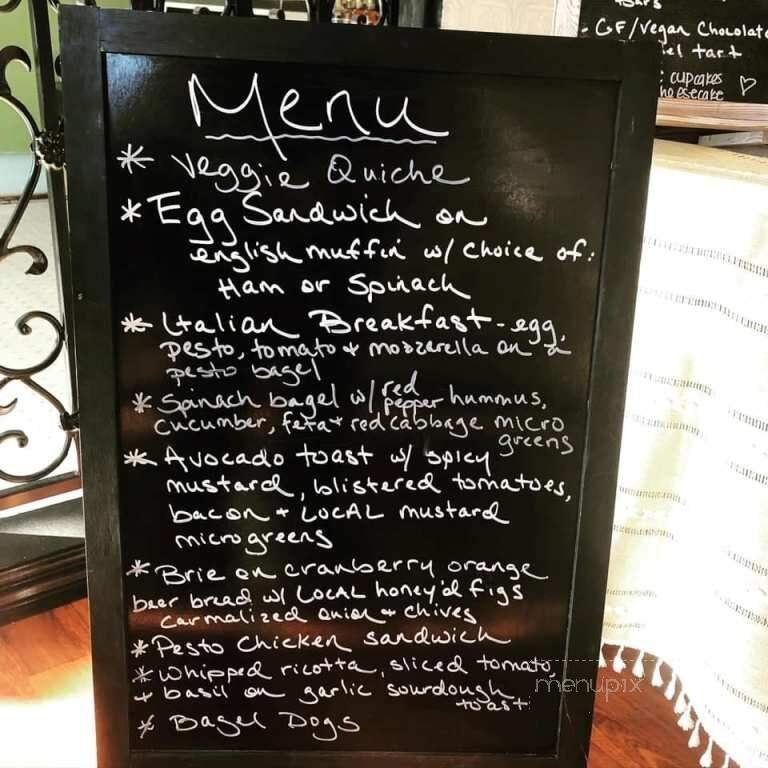 Menu
* Veggie Quiche
* Egg Sandwich on
english muffin w/ choice of:
Ham or Spinach
* Italian Breakfast - egg,
pesto, tomato + mozzerella on a
pesto bagel
* Spinach bagel w/ red pepper hummus,
cucumber, feta + red cabbage micro
greens
* Avocado toast w/ spicy
mustard, blistered tomatoes,
bacon + LOCAL mustard
microgreens
* Brie on cranberry orange
beer bread w/ LOCAL honey'd figs
carmalized onion + chives
* Pesto Chicken sandwich
* Whipped ricotta, sliced tomato,
+ basil on garlic sourdough
toast
* Bagel Dogs
Bars
- GF/Vegan Chocolate
tart
cupcakes
menupix